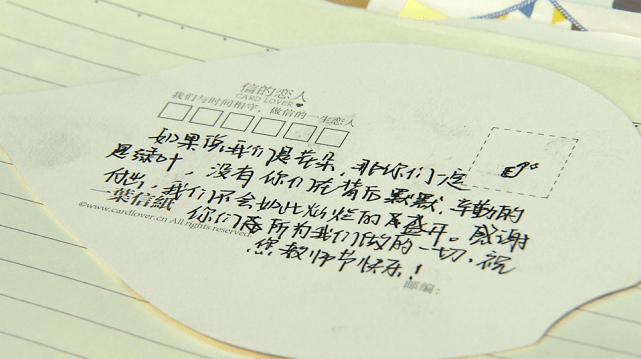 信的恋人
CARD LOVER
我们与时间相守，做信的一生恋人
如果说我们是花朵，那你们一定
是绿叶，没有你们在背后默默、辛勤的
付出，我们不会如此灿烂的盛开。感谢
一葉信紙
©www.cardlover.cn All rights reserved.
你们所为我们做的一切，祝
您教师节快乐！
邮编：